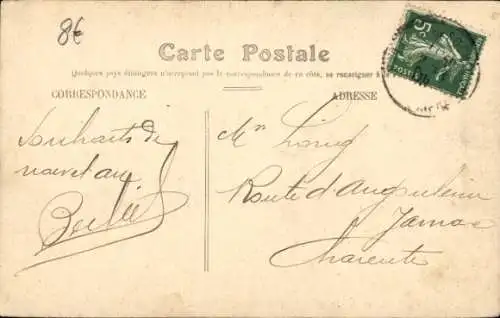 8€
Carte Postale
Quelques pays étrangers n'acceptent pas la correspondance de ce côté, se renseigner à la
CORRESPONDANCE
ADRESSE
5c
POSTES
Souhaits de
nouvel an
Mr
Route d'Angoulème
Jarnac
Charente